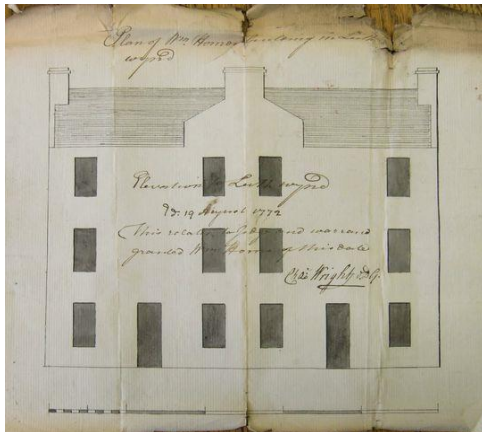 Plan of Wm. Homes building in Leith
wynd
Elevation to Leith wynd
Ed. 19 August 1772
This relative to Act and warrand
granted Wm Home of this date
Chas Wright